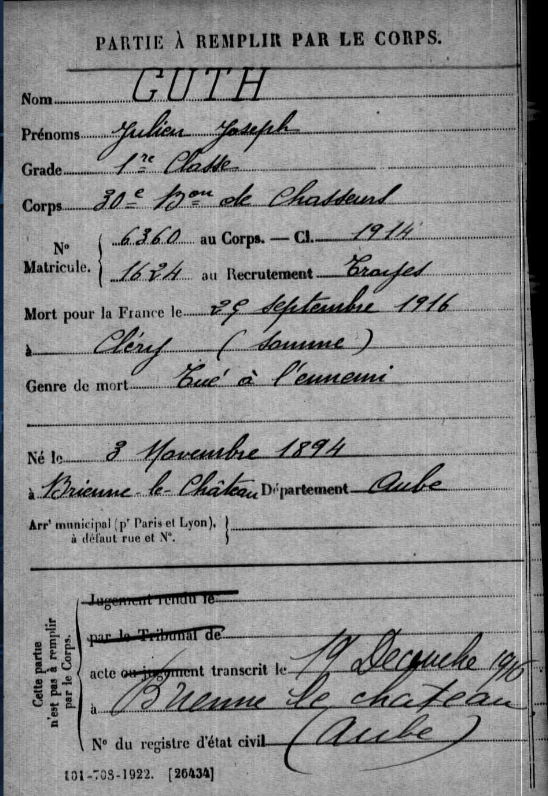 PARTIE À REMPLIR PAR LE CORPS.
Nom GUTH
Prénoms Julien Joseph
Grade 1re Classe
Corps 30e Bon de Chasseurs
N° Matricule. 6360 au Corps. — Cl. 1914
1624 au Recrutement Troyes
Mort pour la France le septembre 1916
à Cléry (Somme)
Genre de mort Tué à l'ennemi
Né le 3 Novembre 1894
à Brienne-le-Château Département Aube
Arrt municipal (pr Paris et Lyon),
à défaut rue et N°.
Cette partie
n'est pas à remplir
par le Corps.
Jugement rendu le
par le Tribunal de
acte ou jugement transcrit le 19 Decembre 1916
à Brienne le chateau
N° du registre d'état civil (Aube)
101-708-1922. [26434]